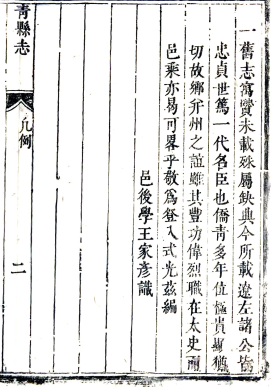 一舊志寓賢未載殊屬缺典今所載遼左諸公皆
忠貞世篤一代名臣也僑青多年位極貴顯猶
切故鄉并州之誼雖其豐功偉烈職在太史而
邑乘亦曷可畧乎敬爲登入式光兹編
邑後學王家彦識
青縣志
凡例
二